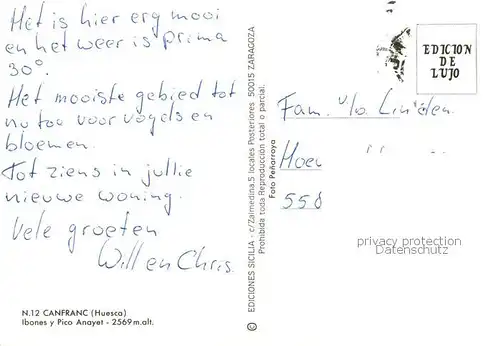 Het is hier erg mooi
en het weer is prima
30°.
Het mooiste gebied tot
nu toe voor vogels en
bloemen.
Tot ziens in jullie
nieuwe woning.
Vele groeten
Will en Chris.
N.12 CANFRANC (Huesca)
Ibones y Pico Anayet - 2569 m. alt.
© EDICIONES SICILIA - c/Zalmedina.S locales Posteriores 50015 ZARAGOZA
Prohibida toda Reproducción total o parcial.
Foto Peñarroya
EDICION
DE
LUJO
Fam. v/d. Linden.
privacy protection
Datenschutz